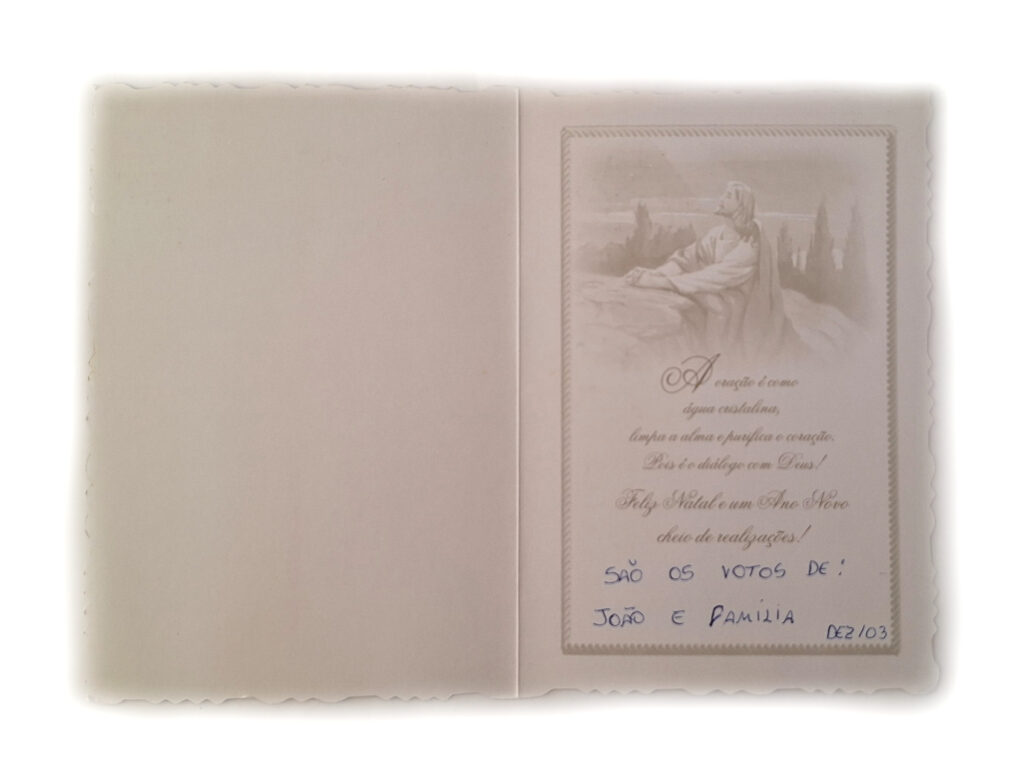 A oração é como
água cristalina,
limpa a alma e purifica o coração.
Pois é o diálogo com Deus!
Feliz Natal e um Ano Novo
cheio de realizações!
SÃO OS VOTOS DE:
JOÃO E FAMÍLIA
DEZ/03